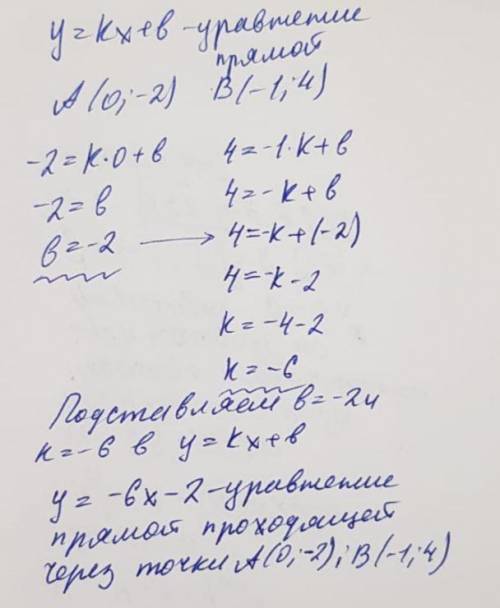 y=kx+в - уравнение
прямой
A(0;-2) B(-1;4)
-2=k·0+в
-2=в
в=-2
4=-1·k+в
4=-k+в
4=-k+(-2)
4=-k-2
k=-4-2
k=-6
Подставляем в=-2 и
k=-6 в y=kx+в
y=-6x-2 - уравнение
прямой проходящей
через точки A(0;-2); B(-1;4)